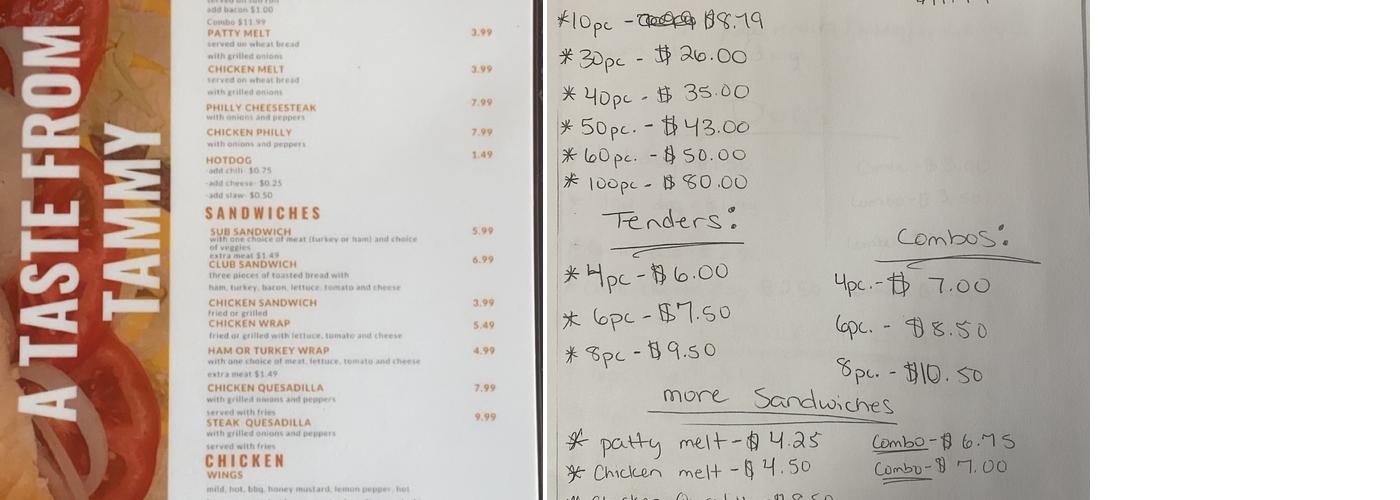 add bacon $1.00
Combo $11.99
PATTY MELT 3.99
served on wheat bread
with grilled onions
CHICKEN MELT 3.99
served on wheat bread
with grilled onions
PHILLY CHEESESTEAK 7.99
with onions and peppers
CHICKEN PHILLY 7.99
with onions and peppers
HOTDOG 1.49
-add chili- $0.75
-add cheese- $0.25
-add slaw- $0.50
SANDWICHES
SUB SANDWICH 5.99
with one choice of meat (turkey or ham) and choice
of veggies
extra meat $1.49
CLUB SANDWICH 6.99
three pieces of toasted bread with
ham, turkey, bacon, lettuce, tomato and cheese
CHICKEN SANDWICH 3.99
fried or grilled
CHICKEN WRAP 5.49
fried or grilled with lettuce, tomato and cheese
HAM OR TURKEY WRAP 4.99
with one choice of meat, lettuce, tomato and cheese
extra meat $1.49
CHICKEN QUESADILLA 7.99
with grilled onions and peppers
served with fries
STEAK QUESADILLA 9.99
with grilled onions and peppers
served with fries
CHICKEN
WINGS
mild, hot, bbq, honey mustard, lemon pepper, hot
A TASTE FROM
TAMMY
*10pc - $8.79
* 30pc - $ 26.00
* 40pc - $ 35.00
* 50pc. - $ 43.00
* 60pc. - $ 50.00
* 100pc - $ 80.00
Tenders:
* 4pc - $ 6.00
* 6pc - $7.50
* 8pc - $ 9.50
Combos:
4pc. - $ 7.00
6pc. - $8.50
8pc. - $10.50
more Sandwiches
* patty melt - $ 4.25 Combo - $ 6.75
* Chicken melt - $ 4.50 Combo - $ 7.00